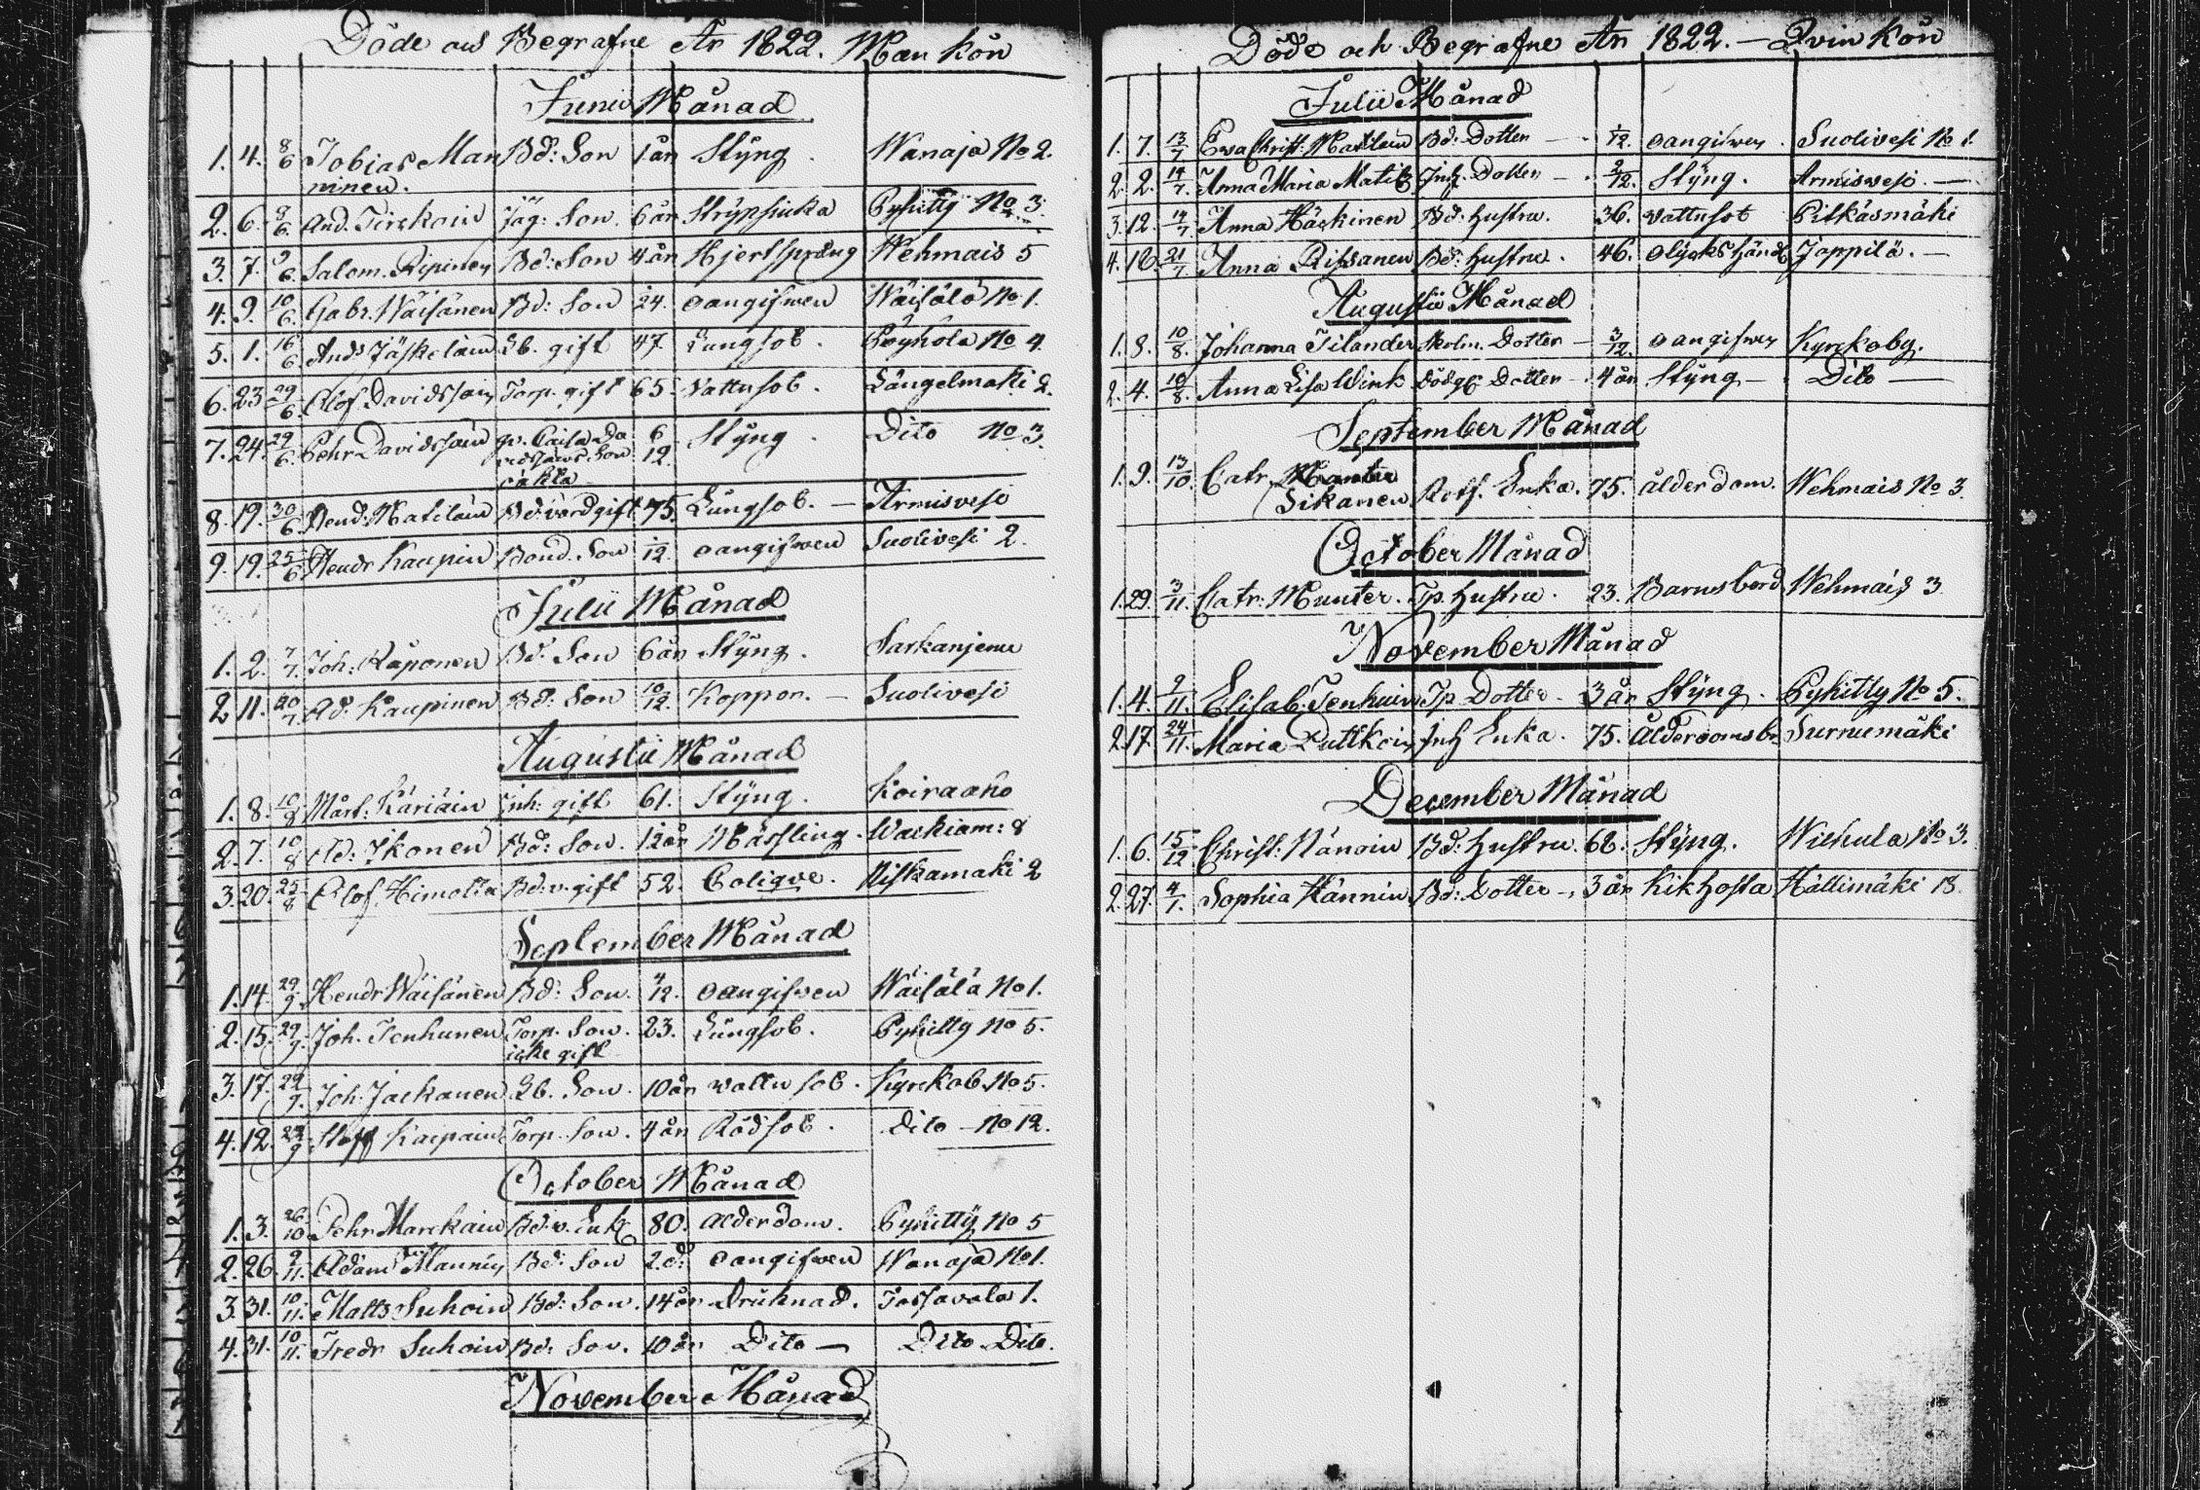 Döde och Begrafne År 1822. Man Kön
Junii Månad
1. 4. 8/6 Tobias Man Bd: Son 1 år Styng. Wanaja No 2.
ninen.
2. 6. 9/6. And. Tirkoin Jäg: Son 6 år Strypsiuka Pyhitty No 3.
3. 7. 9/6. Salom. Ripinen Bd: Son 4 år Hjertsprång Wehmais 5
4. 9. 10/6. Gabr. Wäisänen Bd: Son 24. oangifwen Wäisälä No 1.
5. 1. 16/6 Ands Jäskeläin Lb. gift 47 Lungsot. Pöyhölä No 4.
6. 23 29/6 Olof Davidsson Torp. gift 65 Vattusot. Längelmäki 2.
7. 24. 29/6. Pehr Davidsson qv. Caisa Da 6/12 Styng. Dito No 3.
vidssons Son
oäkta
8. 19. 30/6. Hend: Matilain Bd: värd gift 75. Lungsot. — Armisvesi
9. 19. 25/6. Hendr Kaupin Bond. Son 1/12. oangifwen Suolivesi 2.
Julii Månad
1. 2. 7/7. Joh: Kaponen Bd: Son 6 år Styng. Sarkaniemi
2 11. 20/7 Ad: Kaupinen Bd: Son 10/12 Koppor. — Suolivesi
Augustii Månad
1. 8. 10/8 Mårt: Käriäin Inh: gift 61. Styng. Koiraaho
2. 7. 10/8 Ad: Ikonen Bd: Son. 12 år Mässling. Warkiam: 8
3. 20. 25/8 Olof Himotta Bd: v. gift 52. Colique. Riskamäki 2
September Månad
1. 14. 29/9. Hendr Wäisänen Bd: Son. 4/12. oangifwen Wäisälä No 1.
2. 15. 29/9. Joh. Tenhunen Torp. Son. 23. Lungsot. Pyhitty No 5.
icke gift
3. 17. 29/9. Joh. Jaekanen Lb. Son. 10 år vattusot. Kyrkob. No 5.
4. 12. 29/9 Staff Karpain Torp. Son. 4 år Rödsot. Dito — No 12.
October Månad
1. 3. 26/10 Pehr Marckain Bd: v. Enk 80. Ålderdom. Pyhitty No 5
2. 26. 9/11. Adam Mannin Bd: Son 2 d: oangifwen Wanaja No 1.
3. 31. 10/11. Matts Suhoin Bd: Son. 14 år Druknad. Tossavala 1.
4. 31. 10/11. Fredr Suhoin Bd: Son. 10 år Dito — Dito Dito.
November Månad
Döde och Begrafne År 1822. — Qvin Kön
Julii Månad
1. 7. 13/7 Ewa Christ: Matilain Bd: Dotter — 1/12. oangifwen. Suolivesi No 1.
2. 2. 14/7. Anna Maria Matil Inh. Dotter — 2/12. Styng. Armisvesi. —
3. 12. 14/7. Anna Häskinen Bd: hustru. 36. vattusot Pitkäsmäki
4. 18. 21/7 Anna Rissanen Bd: hustru. 46. olyckshänd Jäppilä. —
Augustii Månad
1. 8. 10/8. Johanna Tilander Skolm. Dotter — 3/12. oangifwen Kyrkoby.
2. 4. 10/8. Anna Lisa Wink Dotter — 4 år Styng — Dito —
September Månad
1. 9. 13/10. Catr.
Sikanen Rotf. Enka. 75. ålderdom. Wehmais No 3.
October Månad
1. 29. 3/11. Catr: Munter. Tp. hustru. 23. Barnsbörd Wehmais 3.
November Månad
1. 4. 9/11. Elisab: Tenhuin Tp Dotter — 3 år Styng. Pyhitty No 5.
2. 17. 24/11. Maria Puttkoin Inh Enka. 75. Ålderdomsbr Surnumäki
December Månad
1. 6. 15/12 Christ: Nänoin Bd: hustru. 62. Styng. Wiehula No 3.
2. 27. 4/1. Sophia Hännin Bd: Dotter —. 3 år Kikhosta Hällimäki 18.